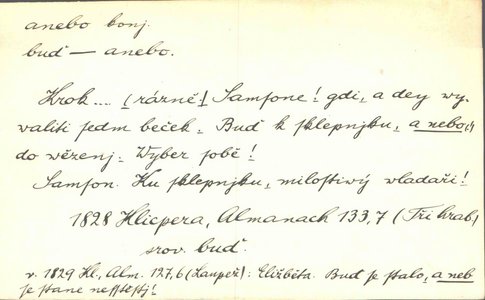 anebo konj.
buď — anebo.
Krok .... [rázně] Samsone! gdi, a dey wy-
waliti sedm beček. Buď k sklepnjku, anebo
do wězenj. Wyber sobě!
Samson. Ku sklepnjku, milostiwý vladaři!
1828 Klicpera, Almanach 133,7 (Tři hrab)
srov. buď.
v. 1829 Kl., Alm. 127,6 (Loupež): Eližběta. Buď se stalo, a neb
se stane neštěstj!